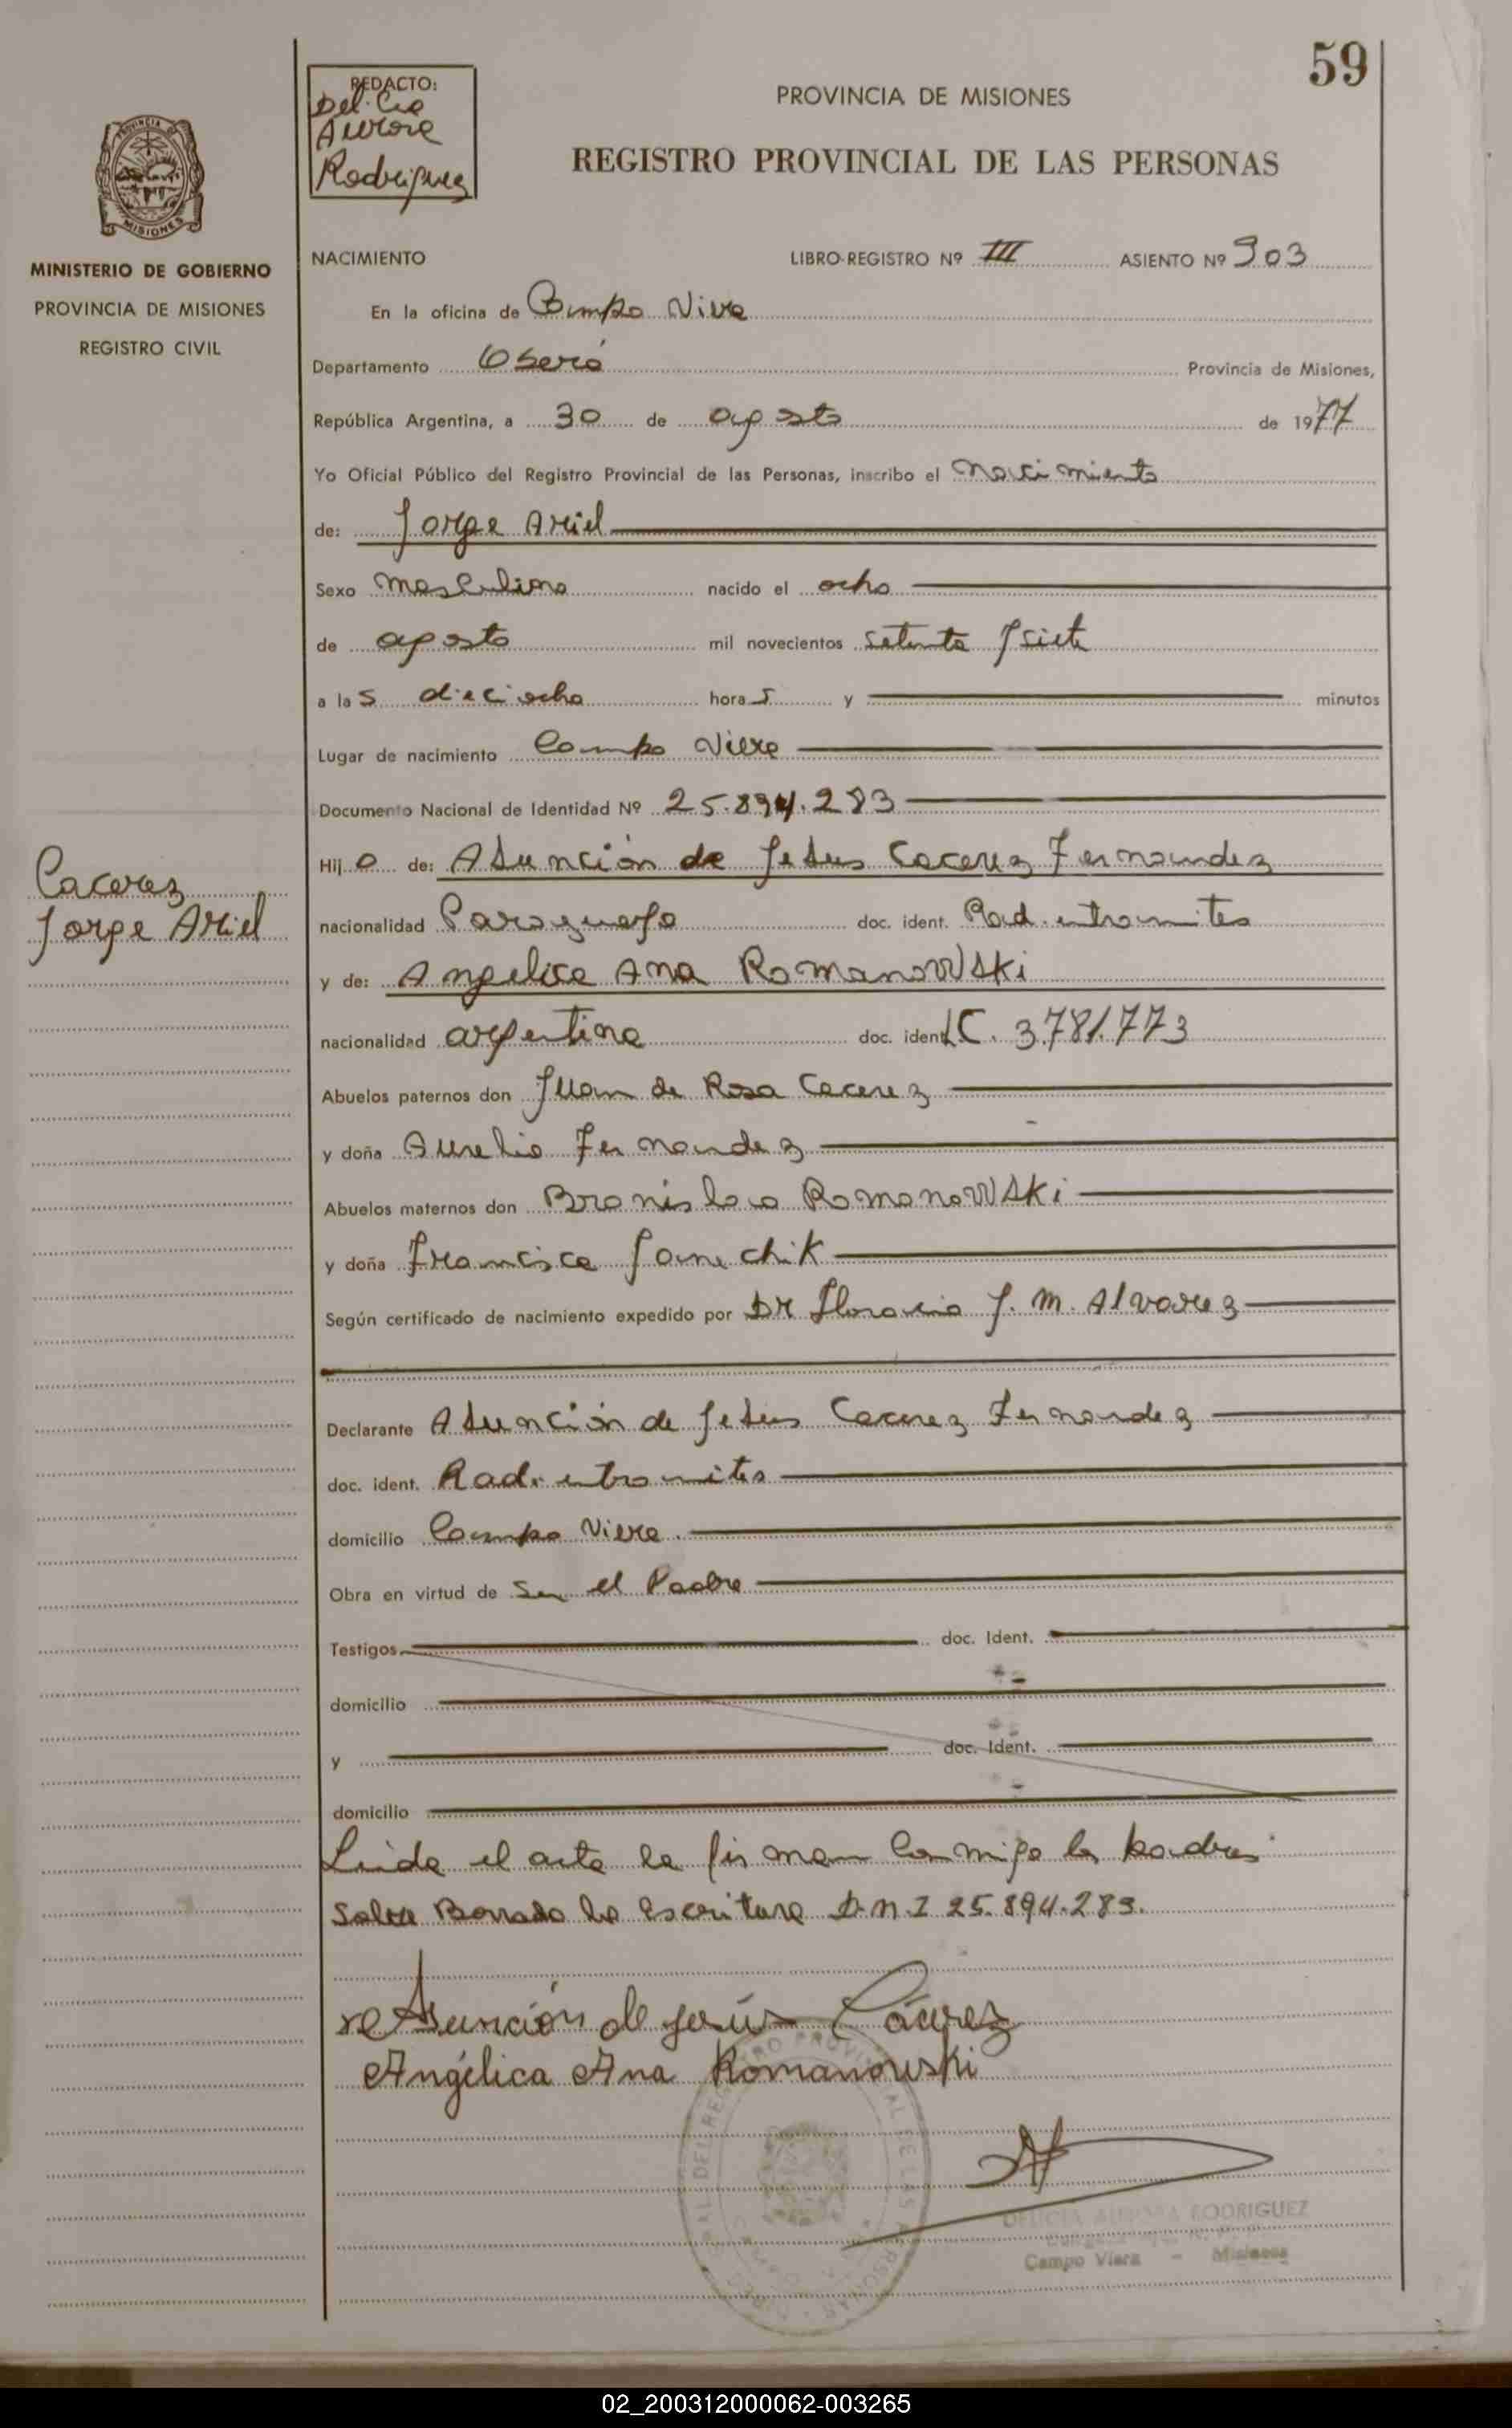 59
REDACTO:
Delicia
Aurora
Rodriguez
PROVINCIA DE MISIONES
REGISTRO PROVINCIAL DE LAS PERSONAS
PROVINCIA DE
MISIONES
MINISTERIO DE GOBIERNO
PROVINCIA DE MISIONES
REGISTRO CIVIL
NACIMIENTO LIBRO-REGISTRO Nº III ASIENTO Nº 903
En la oficina de Campo Viera
Departamento Oberá Provincia de Misiones,
República Argentina, a 30 de agosto de 1977
Yo Oficial Público del Registro Provincial de las Personas, inscribo el nacimiento
de: Jorge Ariel
Sexo masculino nacido el ocho
de agosto mil novecientos setenta y siete
a las dieciocho horas y minutos
Lugar de nacimiento Campo Viera
Documento Nacional de Identidad Nº 25.894.283
Hijo de: Asunción de Jesus Cacerez Fernandez
Cacerez
Jorge Ariel
nacionalidad Paraguaya doc. ident. Rad. en tramites
y de: Angelica Ana Romanowski
nacionalidad argentina doc. ident. LC. 3.781.773
Abuelos paternos don Juan de Rosa Cacerez
y doña Aurelia Fernandez
Abuelos maternos don Bronislao Romanowski
y doña Francisca
Según certificado de nacimiento expedido por DR Horacio J. M. Alvarez
Declarante Asunción de Jesus Cacerez Fernandez
doc. ident. Rad. en tramites
domicilio Campo Viera.
Obra en virtud de ser el Padre
Testigos doc. Ident.
domicilio
y doc. Ident.
domicilio
Leida el acta la firman conmigo los padres
Salva Borrado la escritura D.N.I 25.894.283.
Asunción de Jesús Cácerez
Angélica Ana Romanowski
DELICIA AURORA RODRIGUEZ
Campo Viera - Misiones
02_200312000062-003265